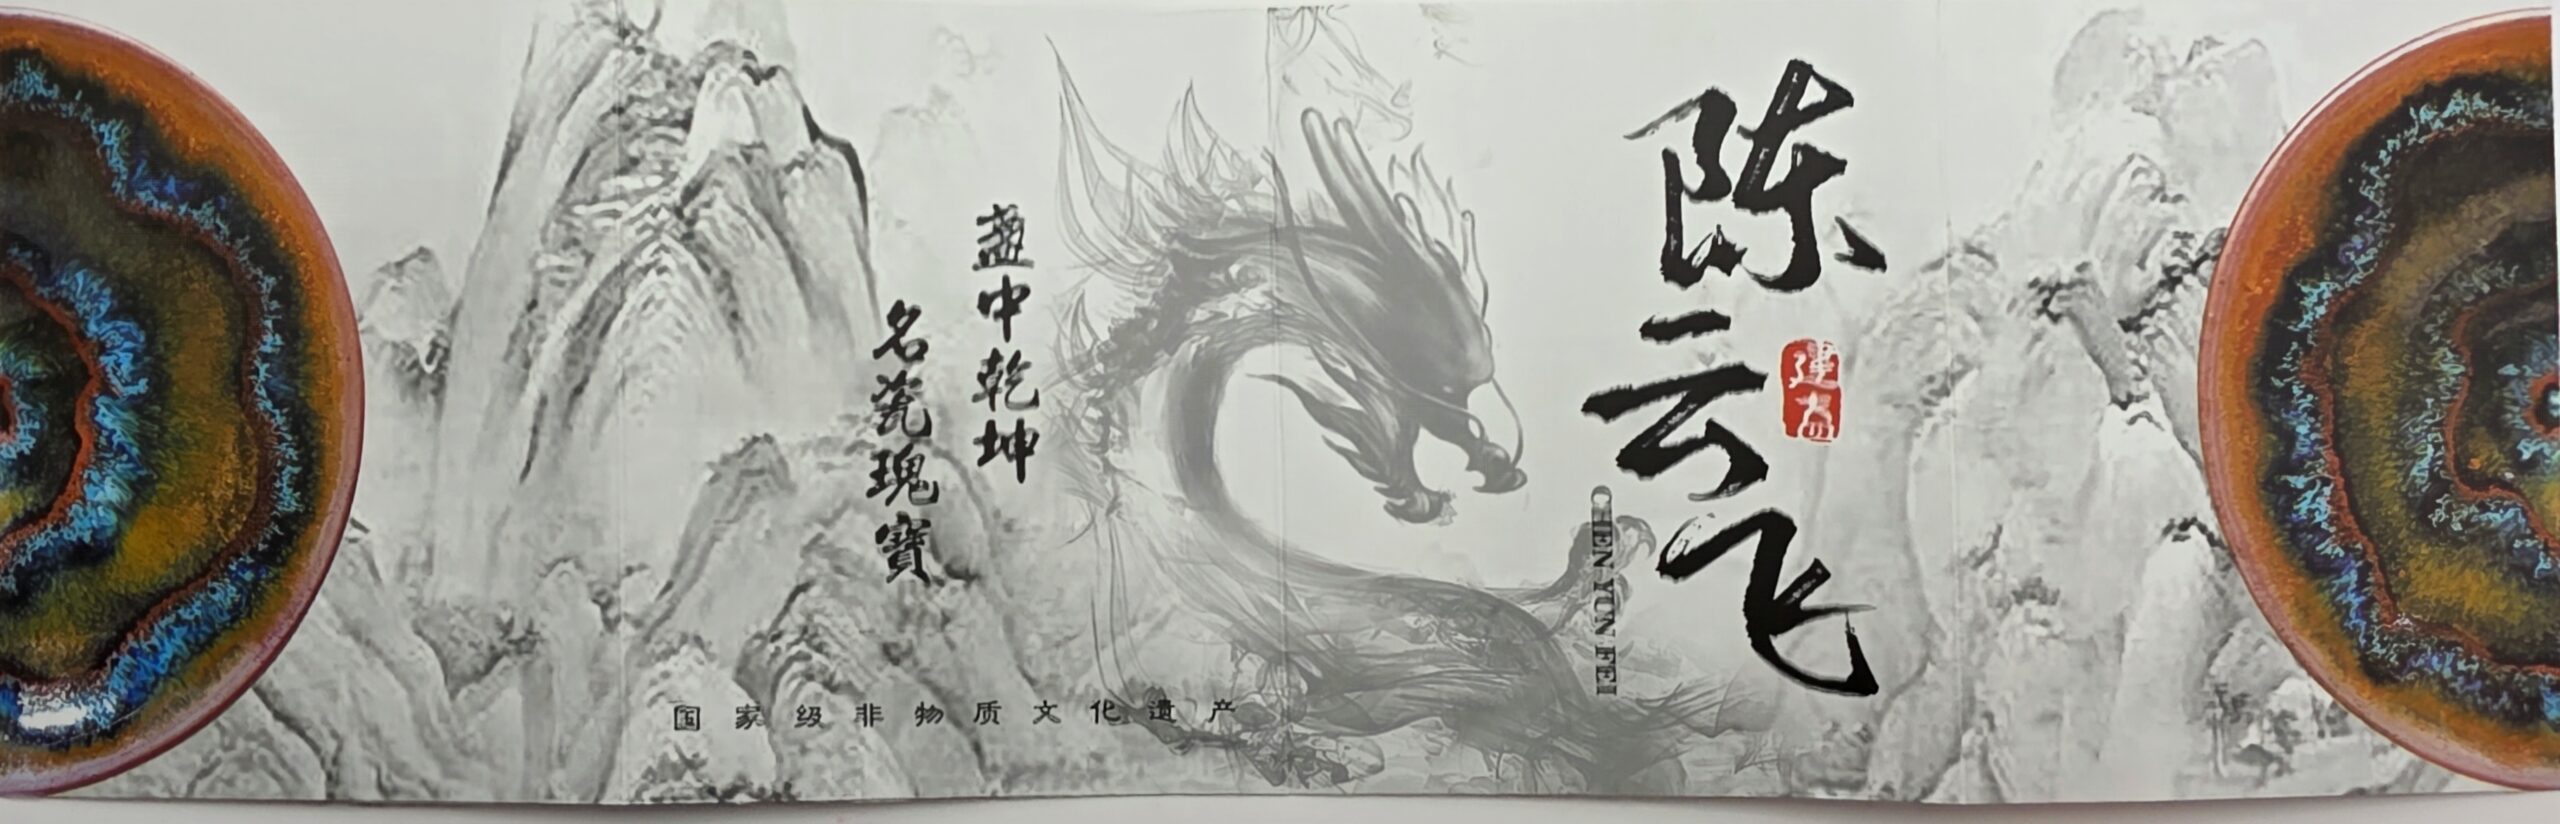 陈云飞
建盏
CHEN YUN FEI
盏中乾坤
名瓷瑰寶
国家级非物质文化遗产